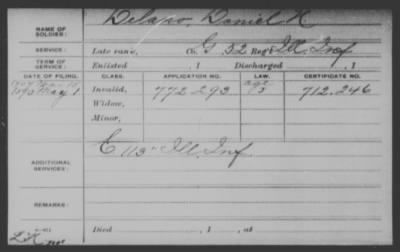 NAME OF SOLDIER: Delano, Daniel K
SERVICE: Late rank, Co. G 52 Reg't Ill. Inf
TERM OF SERVICE: Enlisted , 1 Discharged , 1
DATE OF FILING. CLASS. APPLICATION NO. LAW. CERTIFICATE NO.
1890 May 1 Invalid, 772 293 712.246
Widow,
Minor,
ADDITIONAL SERVICES: E 113" Ill. Inf.
REMARKS:
Died , 1 , at